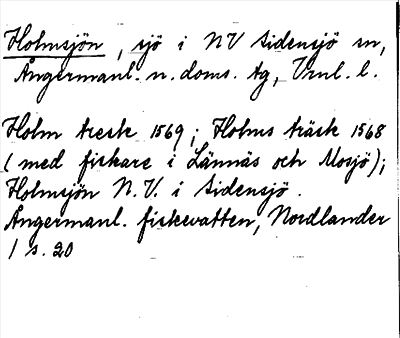 Holmsjön, sjö i NV Sidensjö sn,
Ångermanl. n. doms. tg, Vnl. l.
Holm tresk 1569; Holms träsk 1568
(med fiskare i Lännäs och Mosjö);
Holmsjön N.V. i Sidensjö.
Ångermanl. fiskevatten, Nordlander
/ s. 20